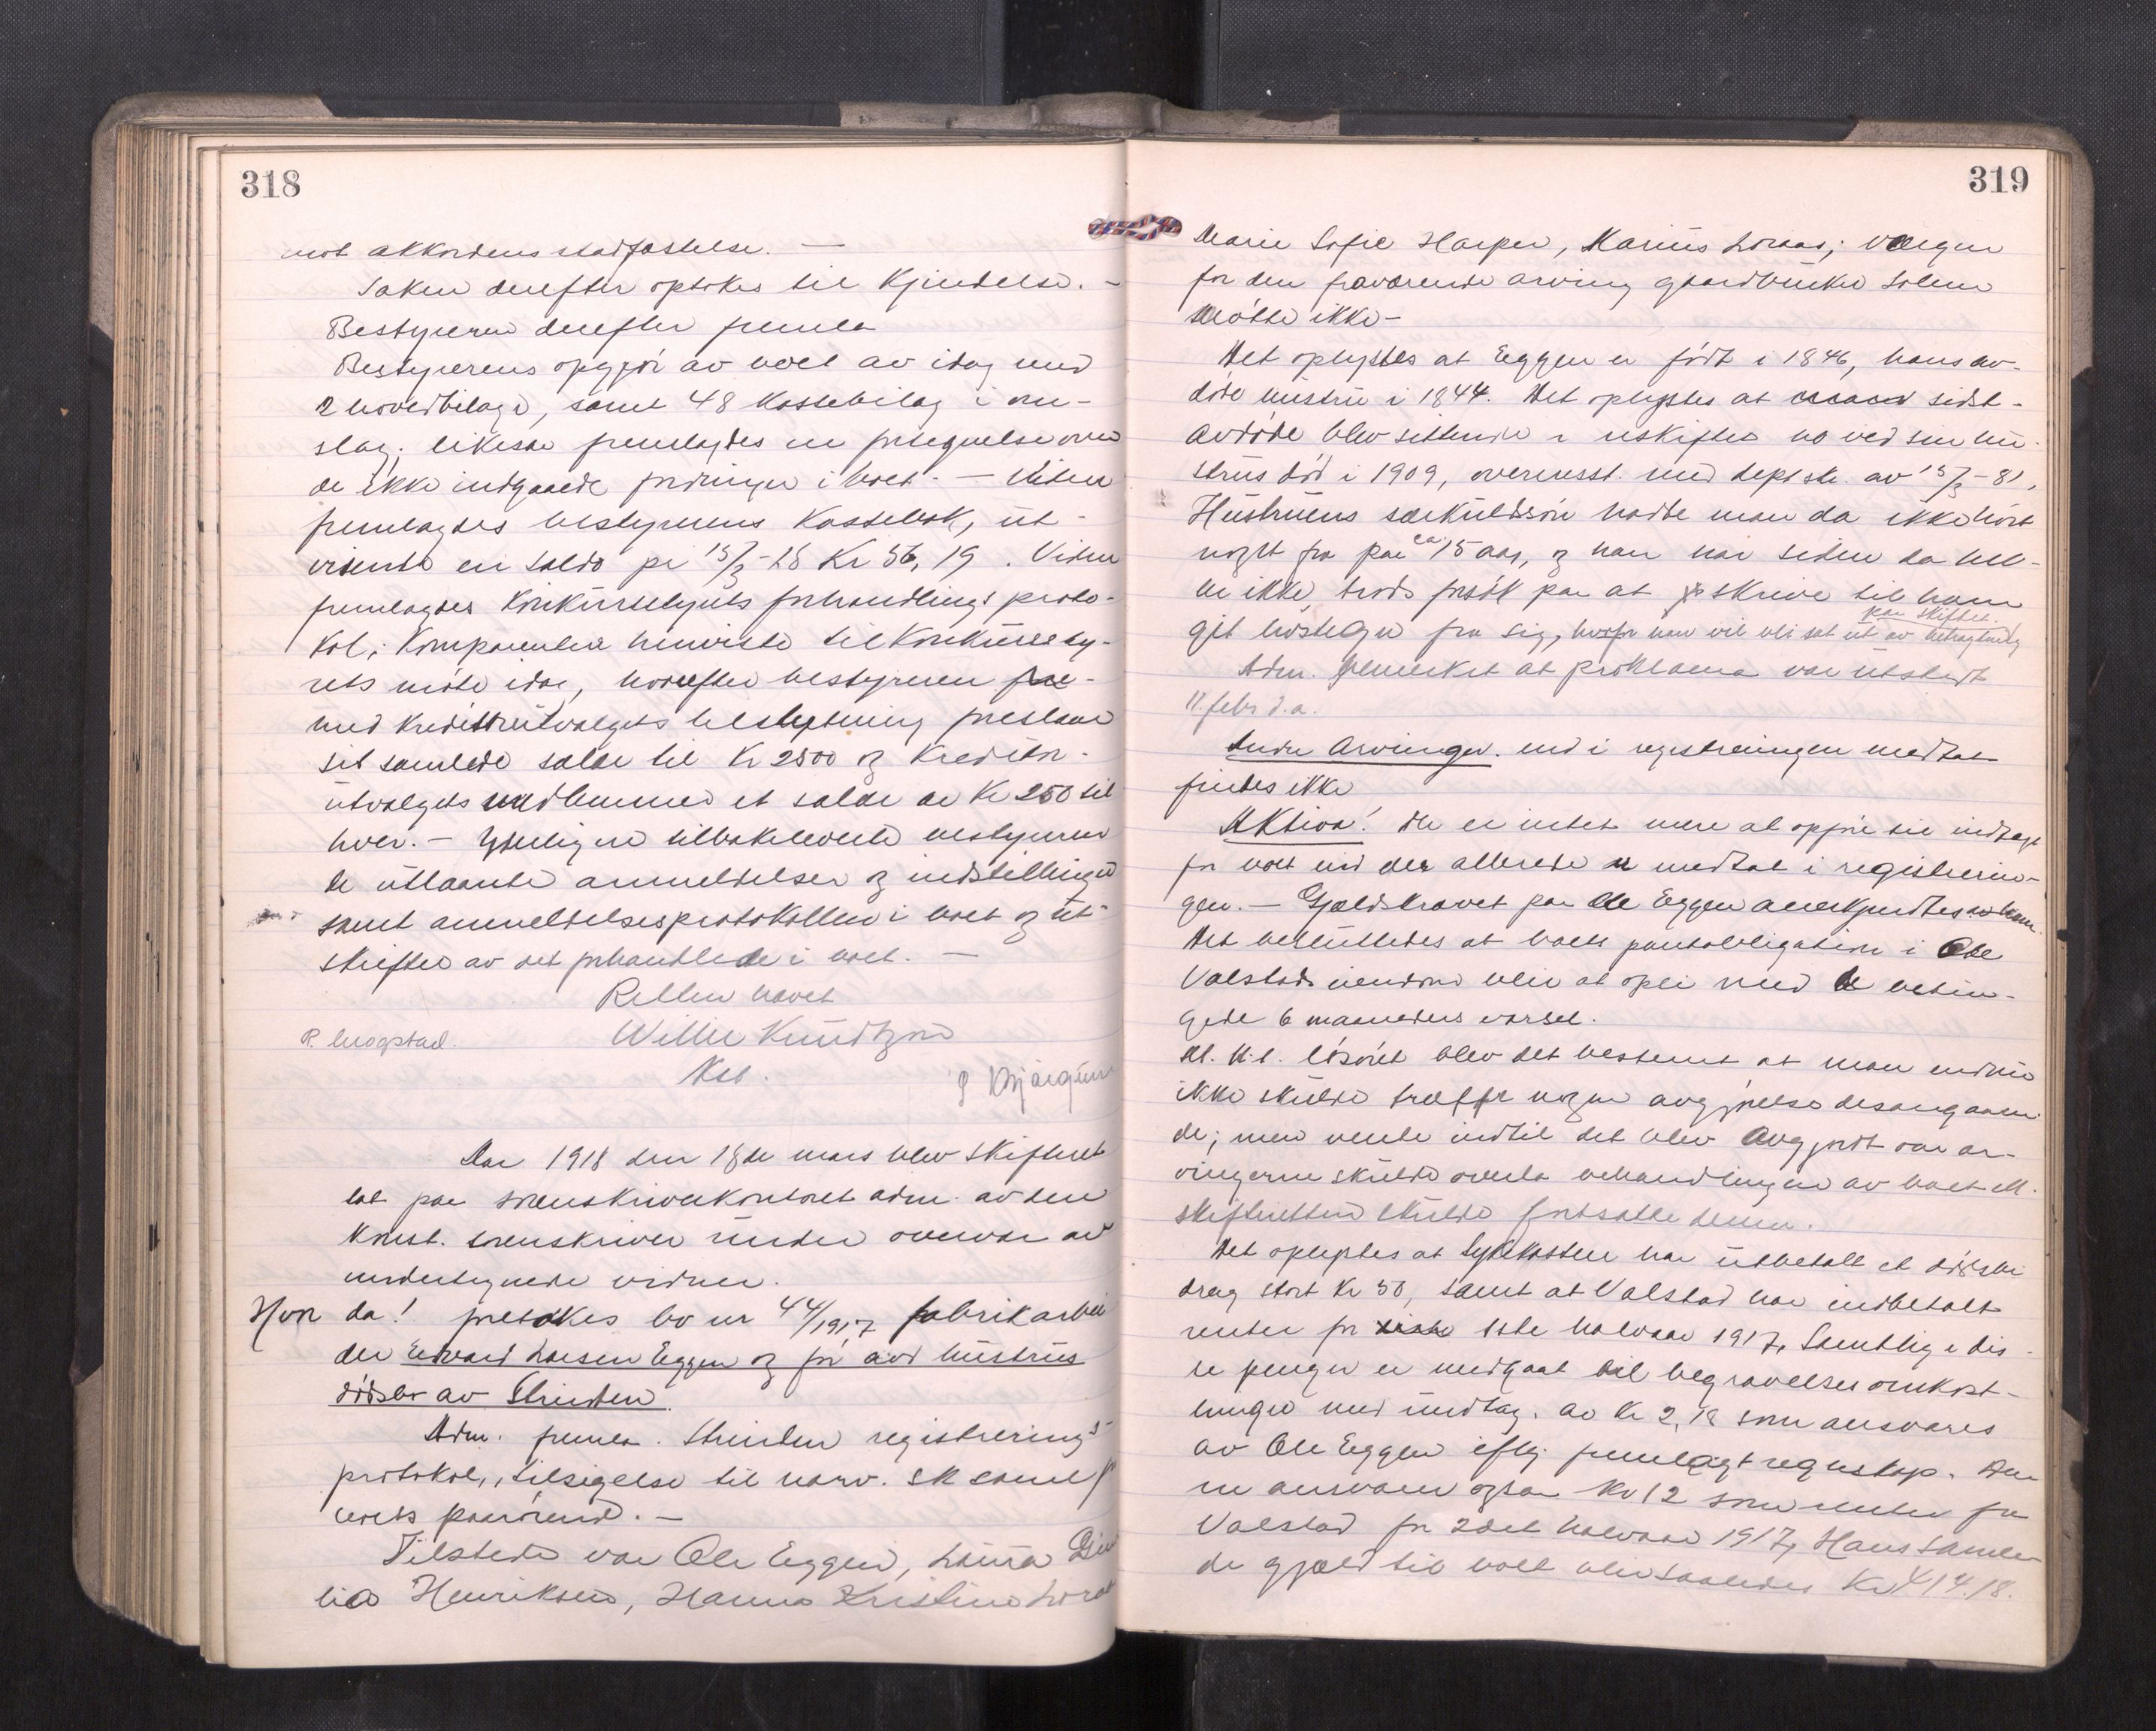 318
mot akkordens stadfæstelse. —
Saken derefter optokes til Kjendelse. —
Bestyreren derefter fremla
Bestyrerens opgjør av boet av idag med
2 hovedbilage, samt 48 kassebilag i om-
slag; likesaa fremlagdes en fortegnelse over
de ikke indgaaede fordringer i boet. — Viden
fremlagdes bestyrerens Kassebok, ut-
visende en saldo pr 15/3-18 Kr 56,19. Viden
fremlagdes Konkursstyrets forhandlings proto-
kol; Komparenten henviste til Konkurssty-
rets møte idag, hvorefter bestyreren
med Kreditorutvalgets tilslutning foreslaar
sit samlede salær til Kr 2500 og Kreditor-
utvalgets medlemmer et salær av Kr 250 til
hver. — Yderligere tilbakeleverte bestyreren
de utlaante anmeldelser og indstillinger
samt anmeldelsesprotokollen i boet og ut-
skrifter av det forhandlede i boet. —
Retten hævet
R. Mogstad. Wilh Knudtzon
Kst.
Aar 1918 den 18de mars blev skifteret
sat paa sorenskriverkontoret adm. av den
konst. sorenskriver under overvær av
undertegnede vidner.
Hvor da! foretokes bo nr 44/1917 fabrikarbei
der Edvard Larsen Eggen og før avd hustrus
dødsbo av Strinden.
Adm. fremla. Strinden registrerings-
protokol, tilsigelse til nærv. sk saml
boets paarørend. —
Tilstede var Ole Eggen, Laura
lia Henriksen, Hanna Kristine Loraas
319
Marie Sofie Harper, Marius Loraas; værgen
for den fraværende arving gaardbruker Solem
møtte ikke —
Det oplystes at Eggen er født i 1846, hans av-
døde hustru i 1844. Det oplystes at sidst-
avdøde blev sittende i uskiftet bo ved sin hu-
strus død i 1909, overensst. med deptskr. av 15/3-81.
Hustruens særkuldssøn hadde man da ikke hørt
noget fra paa ca 15 aar, og han har siden da hel-
ler ikke, trods forsøk paa at skrive til ham
git livstegn fra sig, hvorfor han vil bli sat ut av betragtning
paa skiftet.
Adm. bemerket at proklama var utstedt
11. febr d.a.
Andre Arvinger. end i registreringen medtat
findes ikke
Aktiva! Der er intet mere at opføre til indtægt
for boet end der allerede er medtat i registrerin-
gen. — Gjældskravet paa Ole Eggen anerkjendtes av ham.
Det besluttedes at boets pantobligation i Ole
Valstads eiendom blir at opsi med de betin-
gede 6 maaneders varsel.
M. h. t. løsøret blev det bestemt at man endnu
ikke skulde træffe nogen avgjørelse desangaaen-
de; men vente indtil det blev avgjort om ar-
vingerne skulde overta behandlingen av boet ell.
skifteretten skulde fortsætte denne.
Det oplystes at Sykekassen har utbetalt et dødsbi
drag stort kr 50, samt at Valstad har indbetalt
renter for 1ste halvaar 1917. Samtlige dis-
se penger er medgaat til begravelsesomkost-
ninger med undtag. av Kr 2,18 som ansvares
av Ole Eggen iflg. fremlagt regnskap. Den
ne ansvarer ogsaa Kr 12 som renter fra
Valstad for 2det halvaar 1917, Hans samle
de gjæld til boet blir saaledes Kr 14.18.